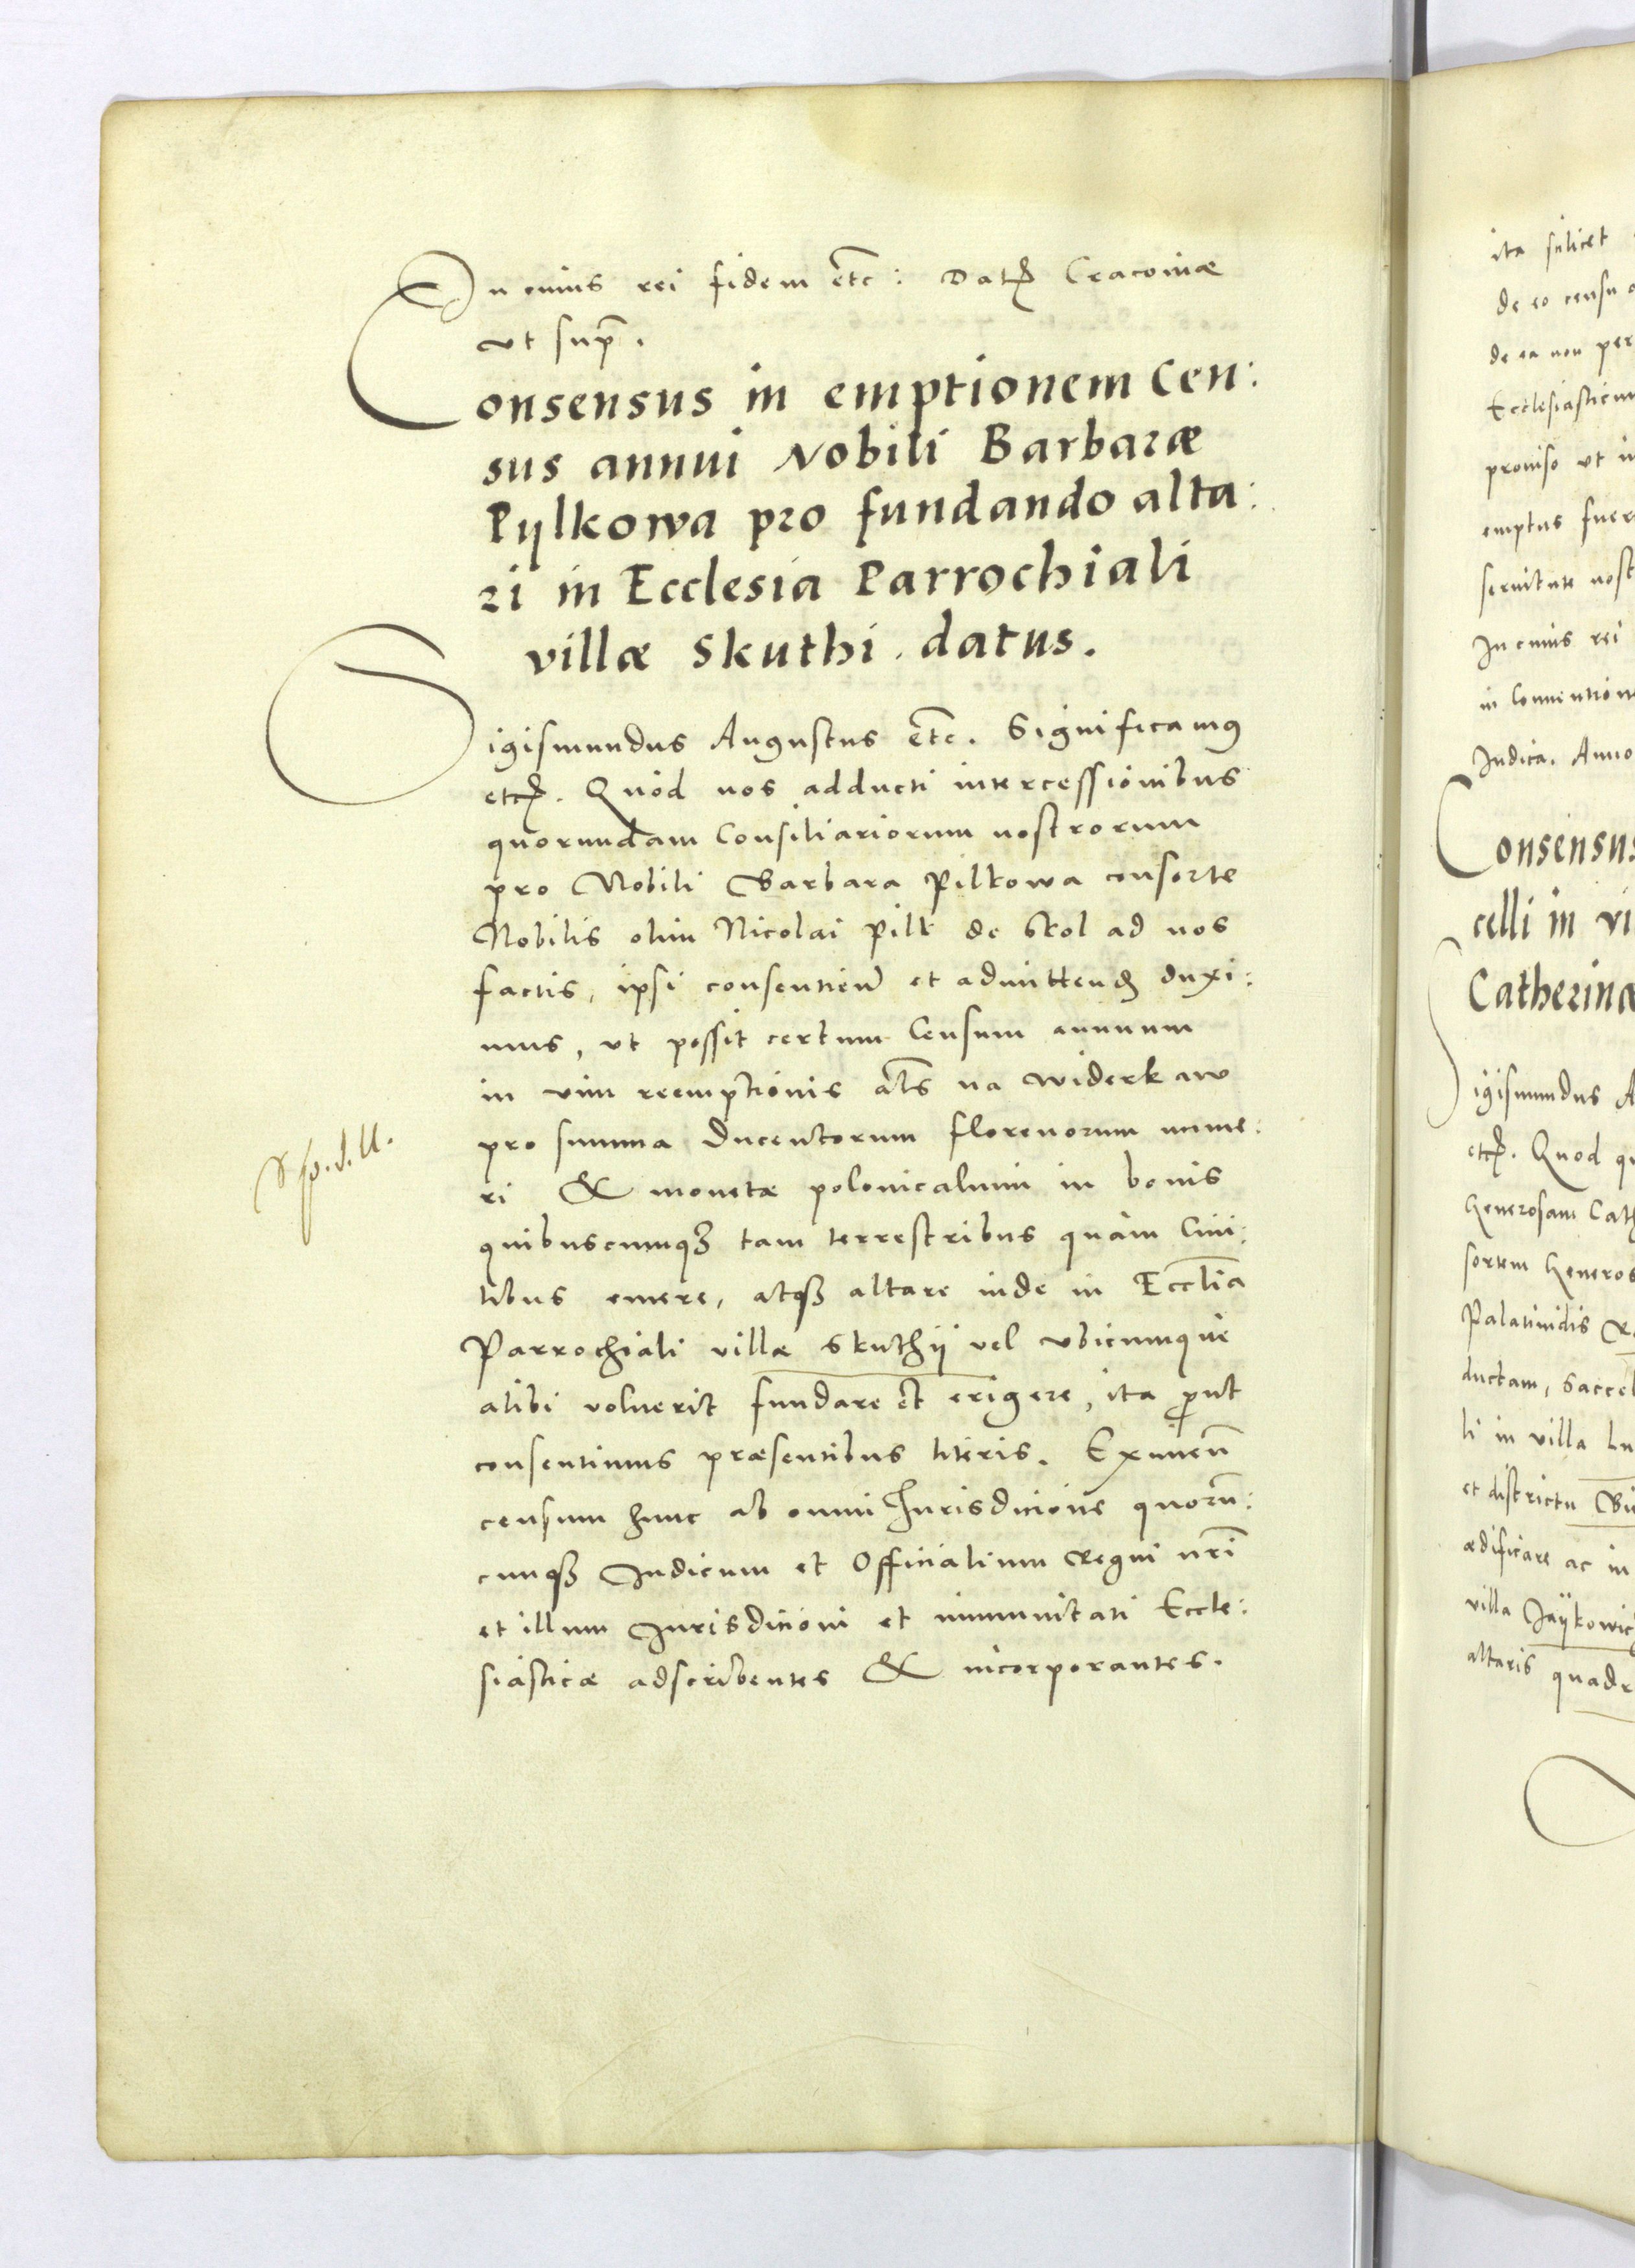 In cuius rei fidem etc: Dat Cracoviæ
ut sup.
Consensus in emptionem Cen:
sus annui Nobili Barbaræ
Pylkowa pro fundando alta:
ri in Ecclesia Parrochiali
villæ Skuthi datus.
Sigismundus Augustus etc. Significamus
etc. Quod nos adducti intercessionibus
quorundam Consiliariorum nostrorum
pro Nobili Barbara Pilkowa consorte
Nobilis olim Nicolai Pilk de Skol ad nos
factis, ipsi consentiend et admittend duxi:
mus, ut possit certum Censum annuum
in vim reemptionis als na widerkaw
pro summa ducentorum florenorum nume:
ri & monetæ polonicalium in bonis
quibuscumq3 tam terrestribus quàm Civi:
libus emere, atq3 altare inde in Ecclia
Parrochiali villæ Skuthij vel ubicumque
alibi voluerit fundare et erigere, ita prout
consentimus præsentibus literis. Eximen
censum hunc ab omni Jurisdicione quorun:
cunq3 Judicum et Officialium Regni nri
et illum Jurisdicioni et immunitati Eccle:
siasticæ adscribentes & incorporantes.
ita scilicet
de eo censu
de ea non per
Ecclesiasticum
proviso ut in
emptus fuer
servitute nost
In cuius rei
in Conventione
Indica. Anno
Consensus
celli in vi
Catherinæ
Sigismundus A
etc. Quod qu
Generosam Cath
sortem Generos
Palatinidis Ra
ductam, Sacel
li in villa Lu
et districtu
ædificare ac in
villa Jaykowic
altaris quadr